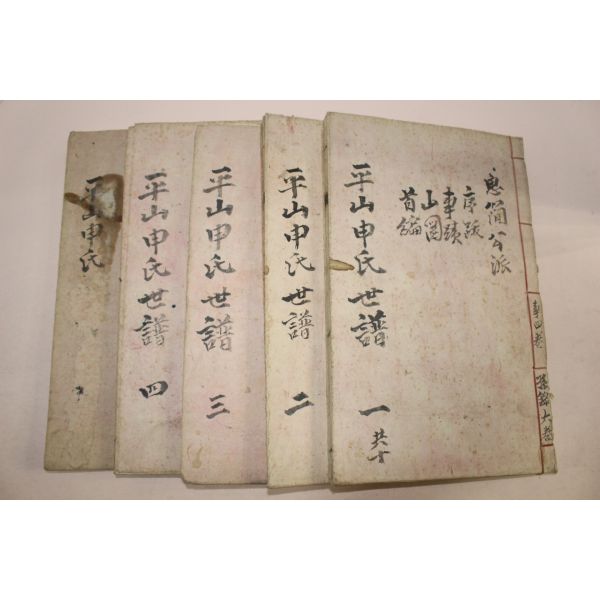 惠簡公派
序跋
事蹟
山圖
首編
平山申氏世譜
一
共十
平山申氏世譜
二
平山申氏世譜
三
平山申氏世譜
四
平山申氏